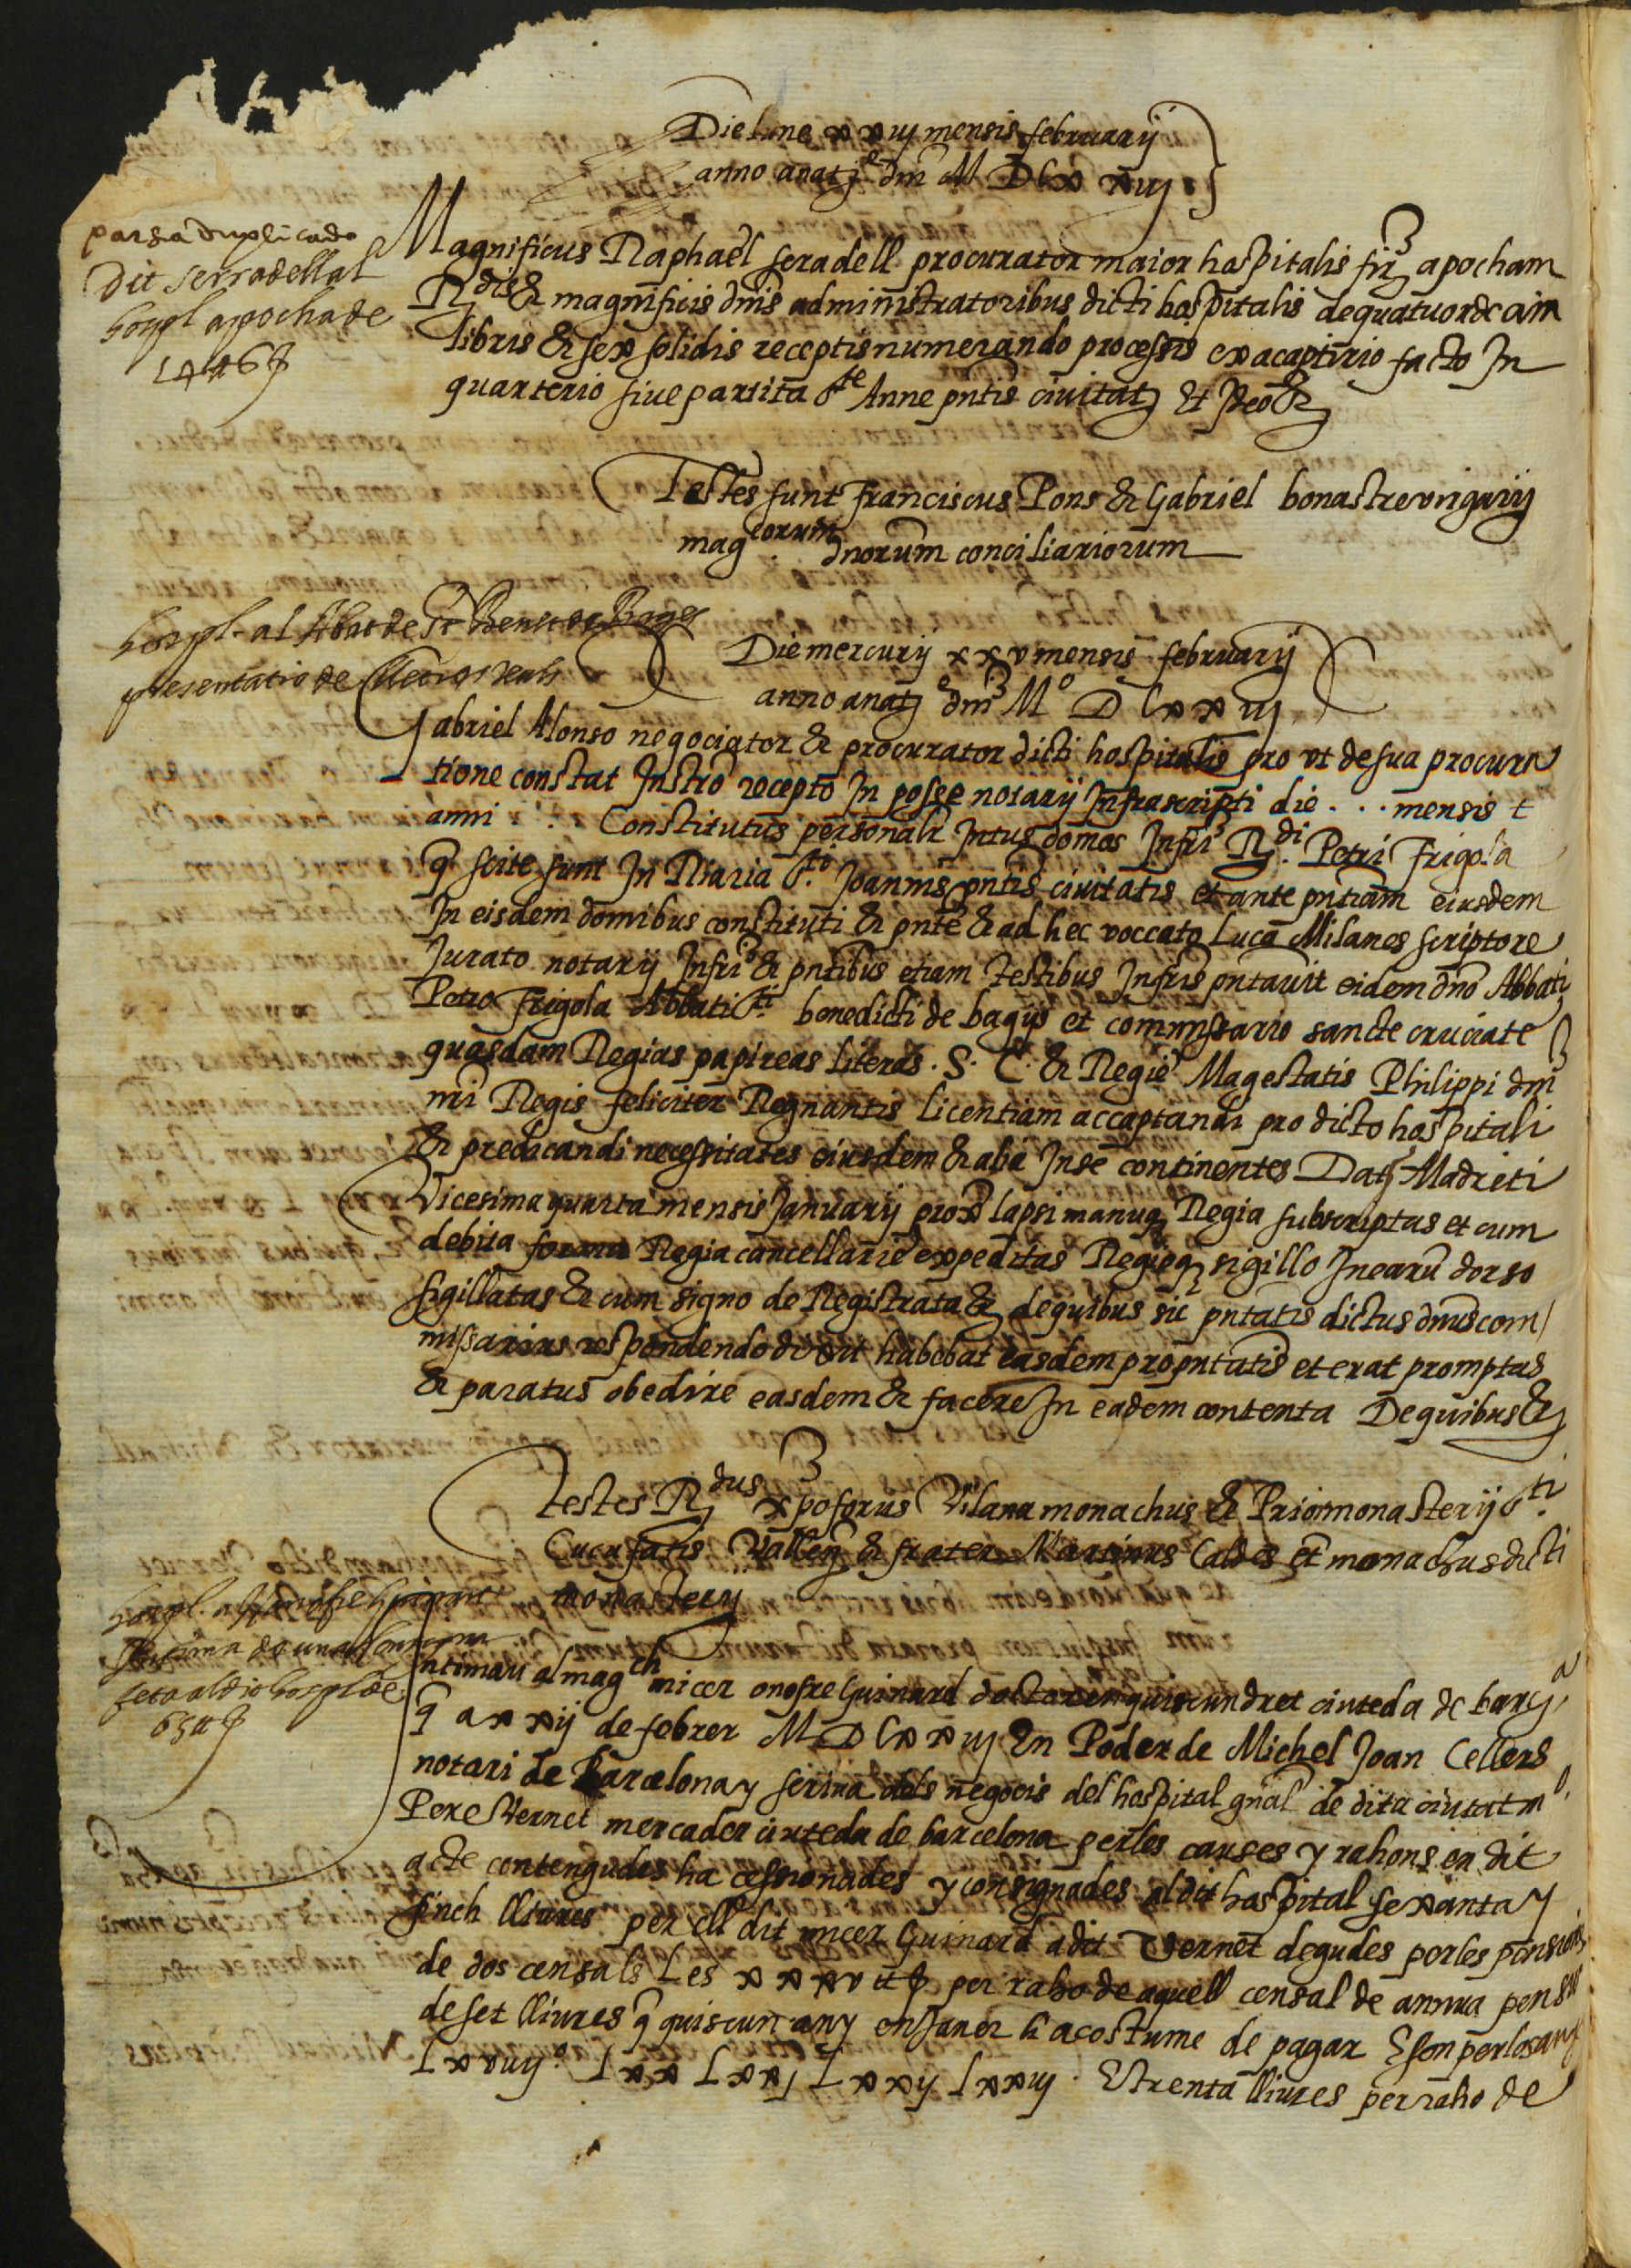 Die lune xxiij mensis februarij
anno a natē dni M D Lxxiij
parsia duplicada
dit serradellal
hospl apocha de
14 ₶ 6 ẞ
Magnificus Raphael seradell procurator maior hospitalis fir apocham
Rdis & magnificis dnis administratoribus dicti hospitalis de quatuordecim
libris & sex solidis receptis numerando processis ex acaptirio facto In
quarterio siue partita Ste Anne pntis ciuitatis Et Ideo &
Testes sunt Franciscus Pons & Gabriel bonastre virigarij
magcorum dnorum conciliariorum
hospl. al Abat de St Benet de Bages
presentatio de lletras reals
Die mercurij xxv mensis februarij
anno a natē dni Mº D Lxxiij
Gabriel Alonso negociator & procurator dicti hospitalis pro vt de sua procura
tione constat Instro recepto In posse notarij Infrascripti die . . . mensis t
anni . . . Constitutus personalr Intus domos Infri Rdi. Petri Frigola
q scite sunt In Riaria Sti Joannis pntis ciuitatis et ante pntiam eiusdem
In eisdem domibus constituti & pnte & ad hec voccato Luca Milanes scriptore
Jurato notarij Infri & pntibus etiam testibus Infris pntauit eidem dno Abbati
Petro Frigola Abbati Sti. benedicti de bagijs et comissario sancte cruciate
quasdam Regias papireas literas . S. C. & Regie Magestatis Philippi dni
nri Regis feliciter Regnantis licentiam accaptandi pro dicto hospitali
& predicandi necessitates eiusdem & alia In se continentes Datas Madriti
Vicesima quarta mensis Januarij prox lapsi manuq Regia subscriptas et cum
debita forma Regia cancellarie expeditas Regieq sigillo In earu dorso
sigillatas & cum signo de Registrata & de quibus sic pntatis dictus dnus com/
missarius respondendo dixit habebat easdem pro pntatis et erat promptus
& paratus obedire easdem & facere In eadem contenta De quibus &
testes Rdus xpoforus Vilana monachus & Prior monasterij Sti.
Cucufatis Vallen & frater Martinus Caldes et monachus dicti
monasterij
hospl. a
de una
feta al dit hospl de
65 ₶ ẞ
Intimari al magch micer onofre Guinard doctor en quiscun dret ciuteda de barcª
q a xxij de febrer M D Lxxiij En Poder de Michel Joan Cellers
notari de Barcelona y scriua dels negocis del hospital gnal de dita ciutat mº.
Pere Vernet mercader ciuteda de barcelona per les causes y rahons en dit
acte contengudes ha cessionades y consignades al dit hospital sexanta y
sinch lliures per ell dit micer Guinard a dit Vernet degudes per les pensions
de dos censals Les xxxv ₶ ẞ per raho de aquell censal de annua pensio
de set lliures q quiscun any en Janer li acostume de pagar E son per los anys
Lxviiijº. Lxx Lxxj Lxxij Lxxiij. E trenta lliures per raho de